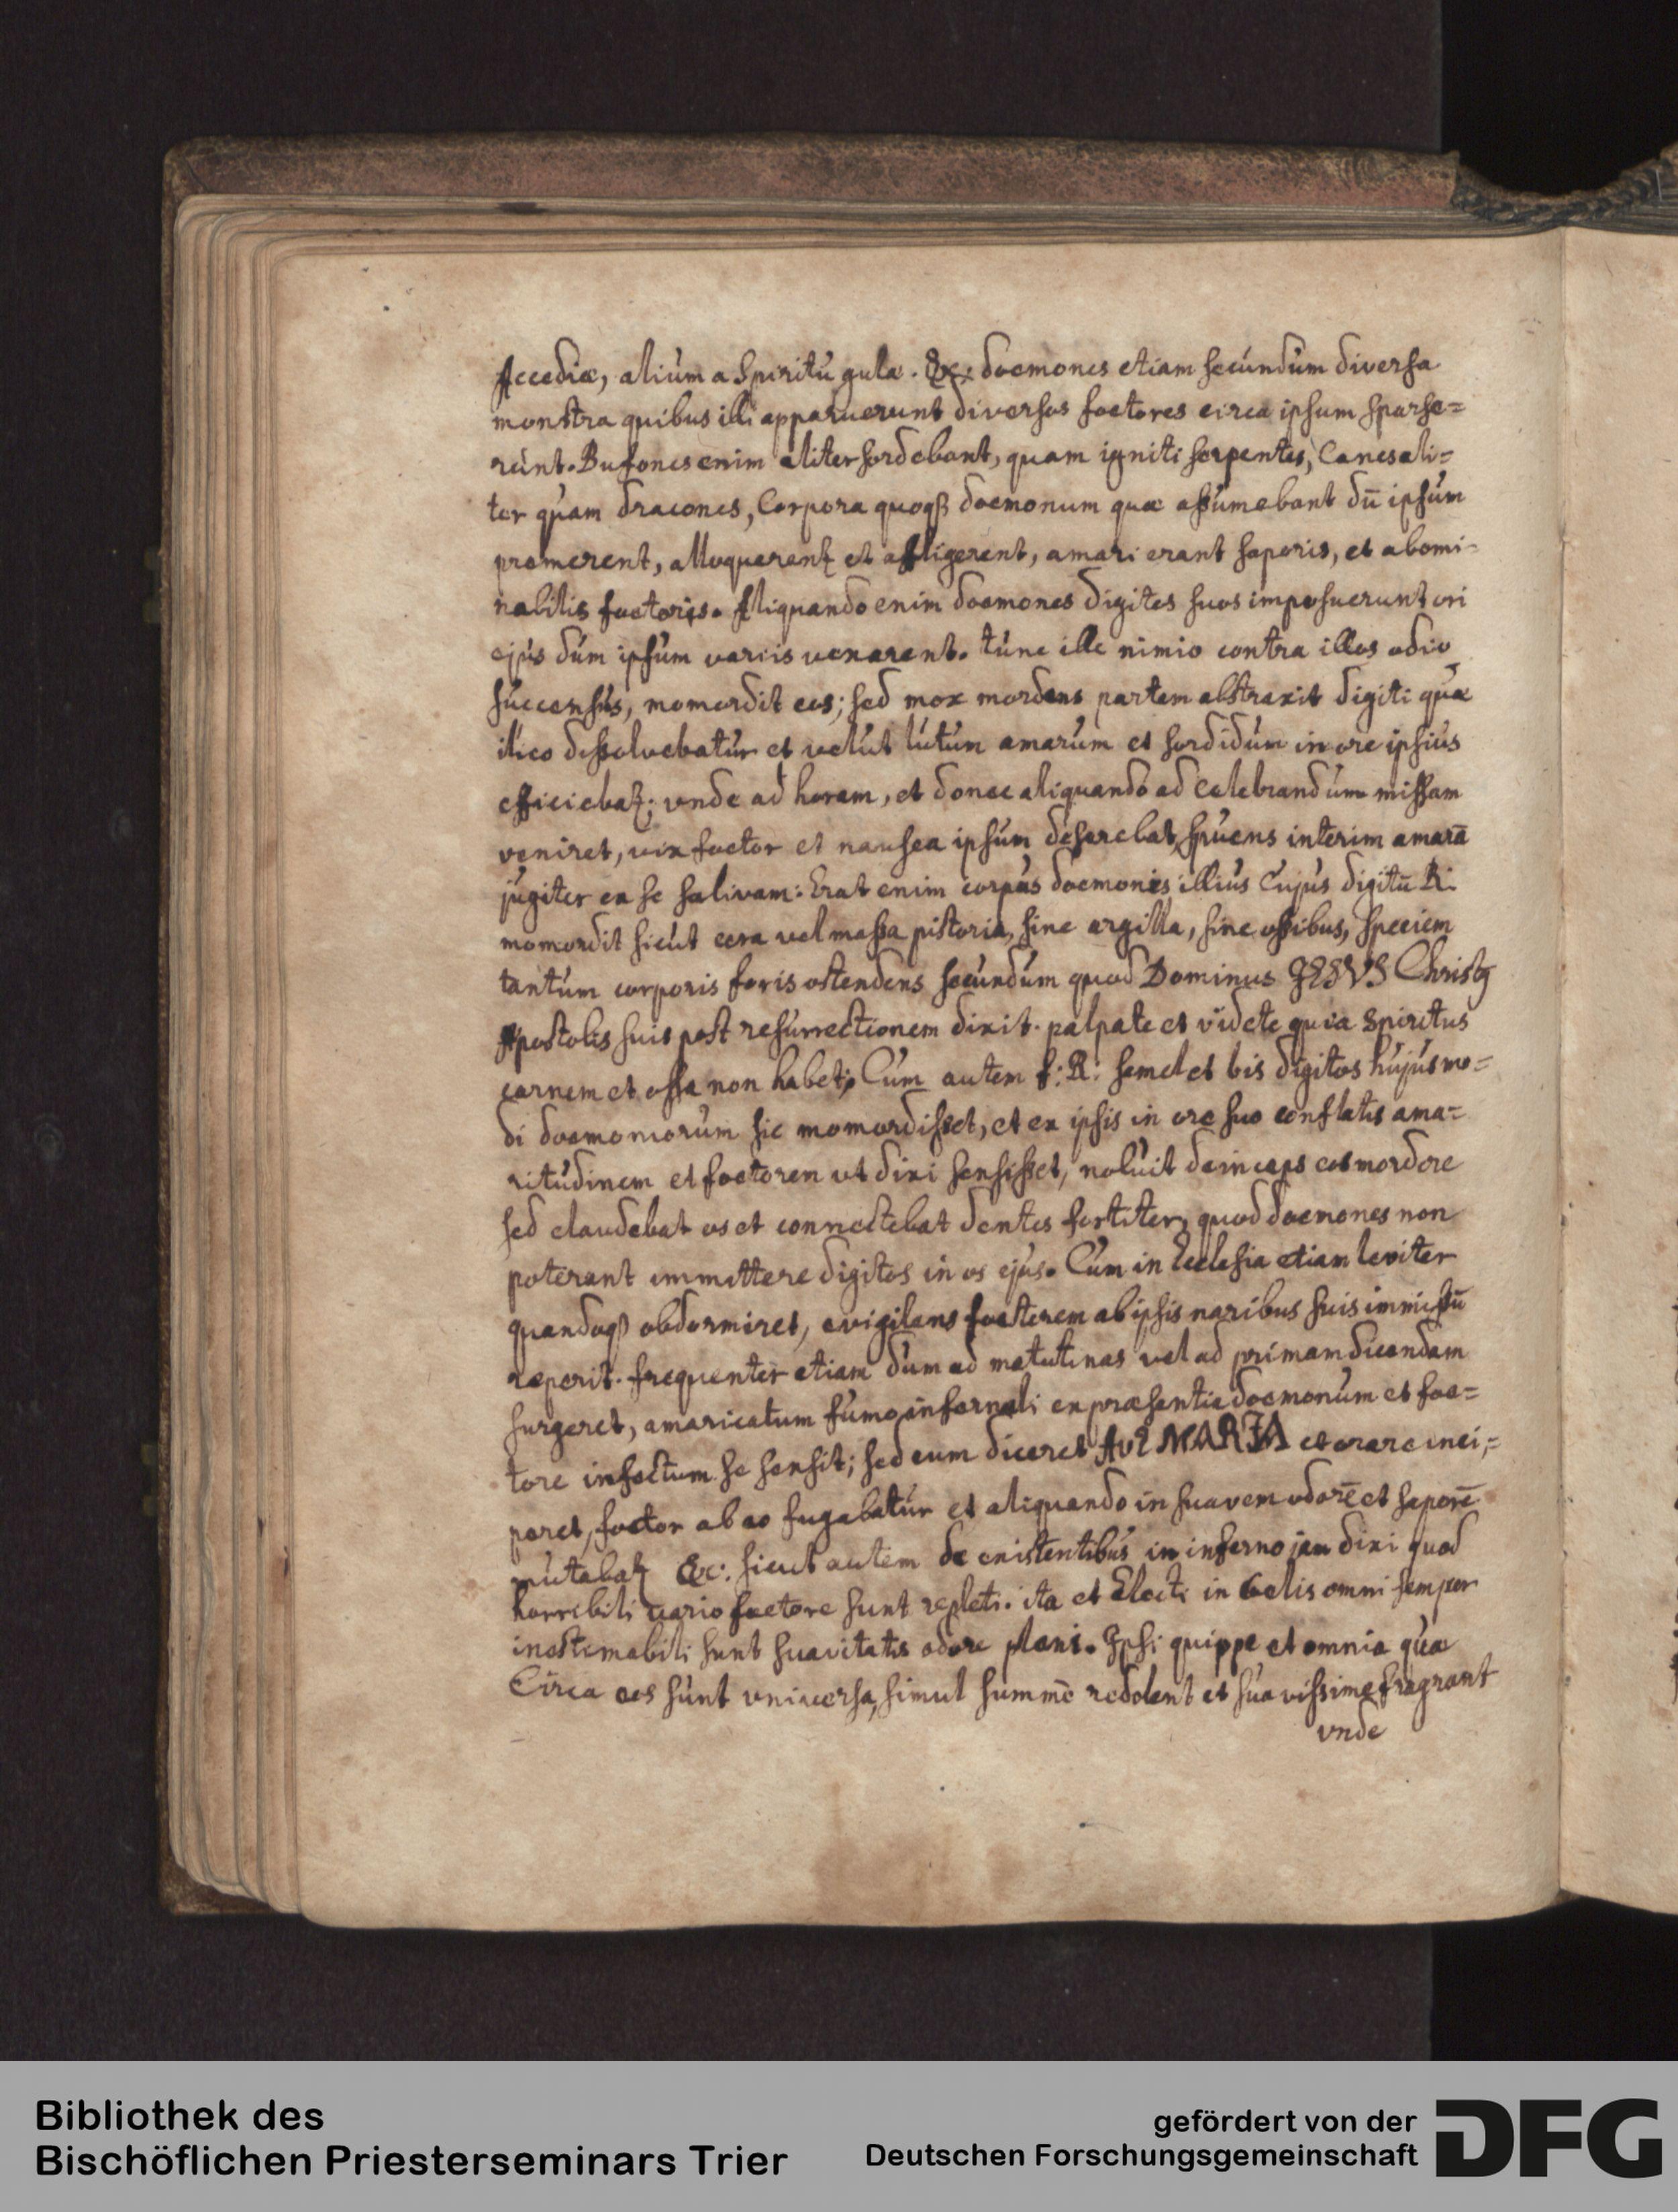 Accediæ, alium a Spiritu gulæ. &c: doemones etiam secundum diversa
monstra quibus illi apparuerunt diversos foetores circa ipsum sparse=
runt. Bufones enim aliter sordebant, quam igniti serpentes, Canes ali=
ter quam dracones, Corpora quoqß doemonum quæ assumebant dū ipsum
premerent, alloquerent et affligerent, amari erant saporis, et abomi=
nabilis foetoris. Aliquando enim doemones digitos suos imposuerunt ori
ejus dum ipsum variis vexarent. tunc ille nimio contra illos odio
succensus, momordit eos; sed mox mordens partem abstraxit digiti quæ
ilico dissolvebatur et velut lutum amarum et sordidum in ore ipsius
efficiebat; vnde ad horam, et donec aliquando ad Celebrandum missam
veniret, vix foetor et nausea ipsum deserebat, spuens interim amarā
jugiter ex se salivam: Erat enim corpus doemonis illius Cujus digitū R:
momordit sicut cera vel massa pistoria, sine argilla, sine ossibus, speciem
tantum corporis foris ostendens secundum quod Dominus JESVS Christ9
Apostolis suis post resurrectionem dixit. palpate et videte quia Spiritus
carnem et ossa non habet; Cum autem f: R: semel et bis digitos hujusmo=
di doemoniorum sic momordisset, et ex ipsis in ore suo conflatis ama=
ritudinem et foetorem vt dixi sensisset, noluit deinceps eos mordere
sed claudebat os et connectebat dentes fortiter, quod doemones non
poterant immittere digitos in os ejus. Cum in Ecclesia etiam leviter
quandoqß obdormiret, evigilans foetorem ab ipsis naribus suis immissū
reperit. frequenter etiam dum ad matutinas vel ad primam dicendam
surgeret, amaricatum fumo infernali ex præsentia doemonum et foe=
tore infectum se sensit; sed cum diceret AVE MARIA et orare inci,=
peret, foetor ab eo fugabatur et aliquando in suavem odorē et saporē
mutabat &c: sicut autem de existentibus in inferno jam dixi quod
horribili vario foetore sunt repleti. ita et Electi in Celis omni semper
inestimabili sunt suavitatis odore pleni. Ipsi quippe et omnia quæ
Circa eos sunt vniversa, simul summè redolent et suavissime fragrant
vnde
Bibliothek des
Bischöflichen Priesterseminars Trier
gefördert von der
Deutschen Forschungsgemeinschaft
DFG